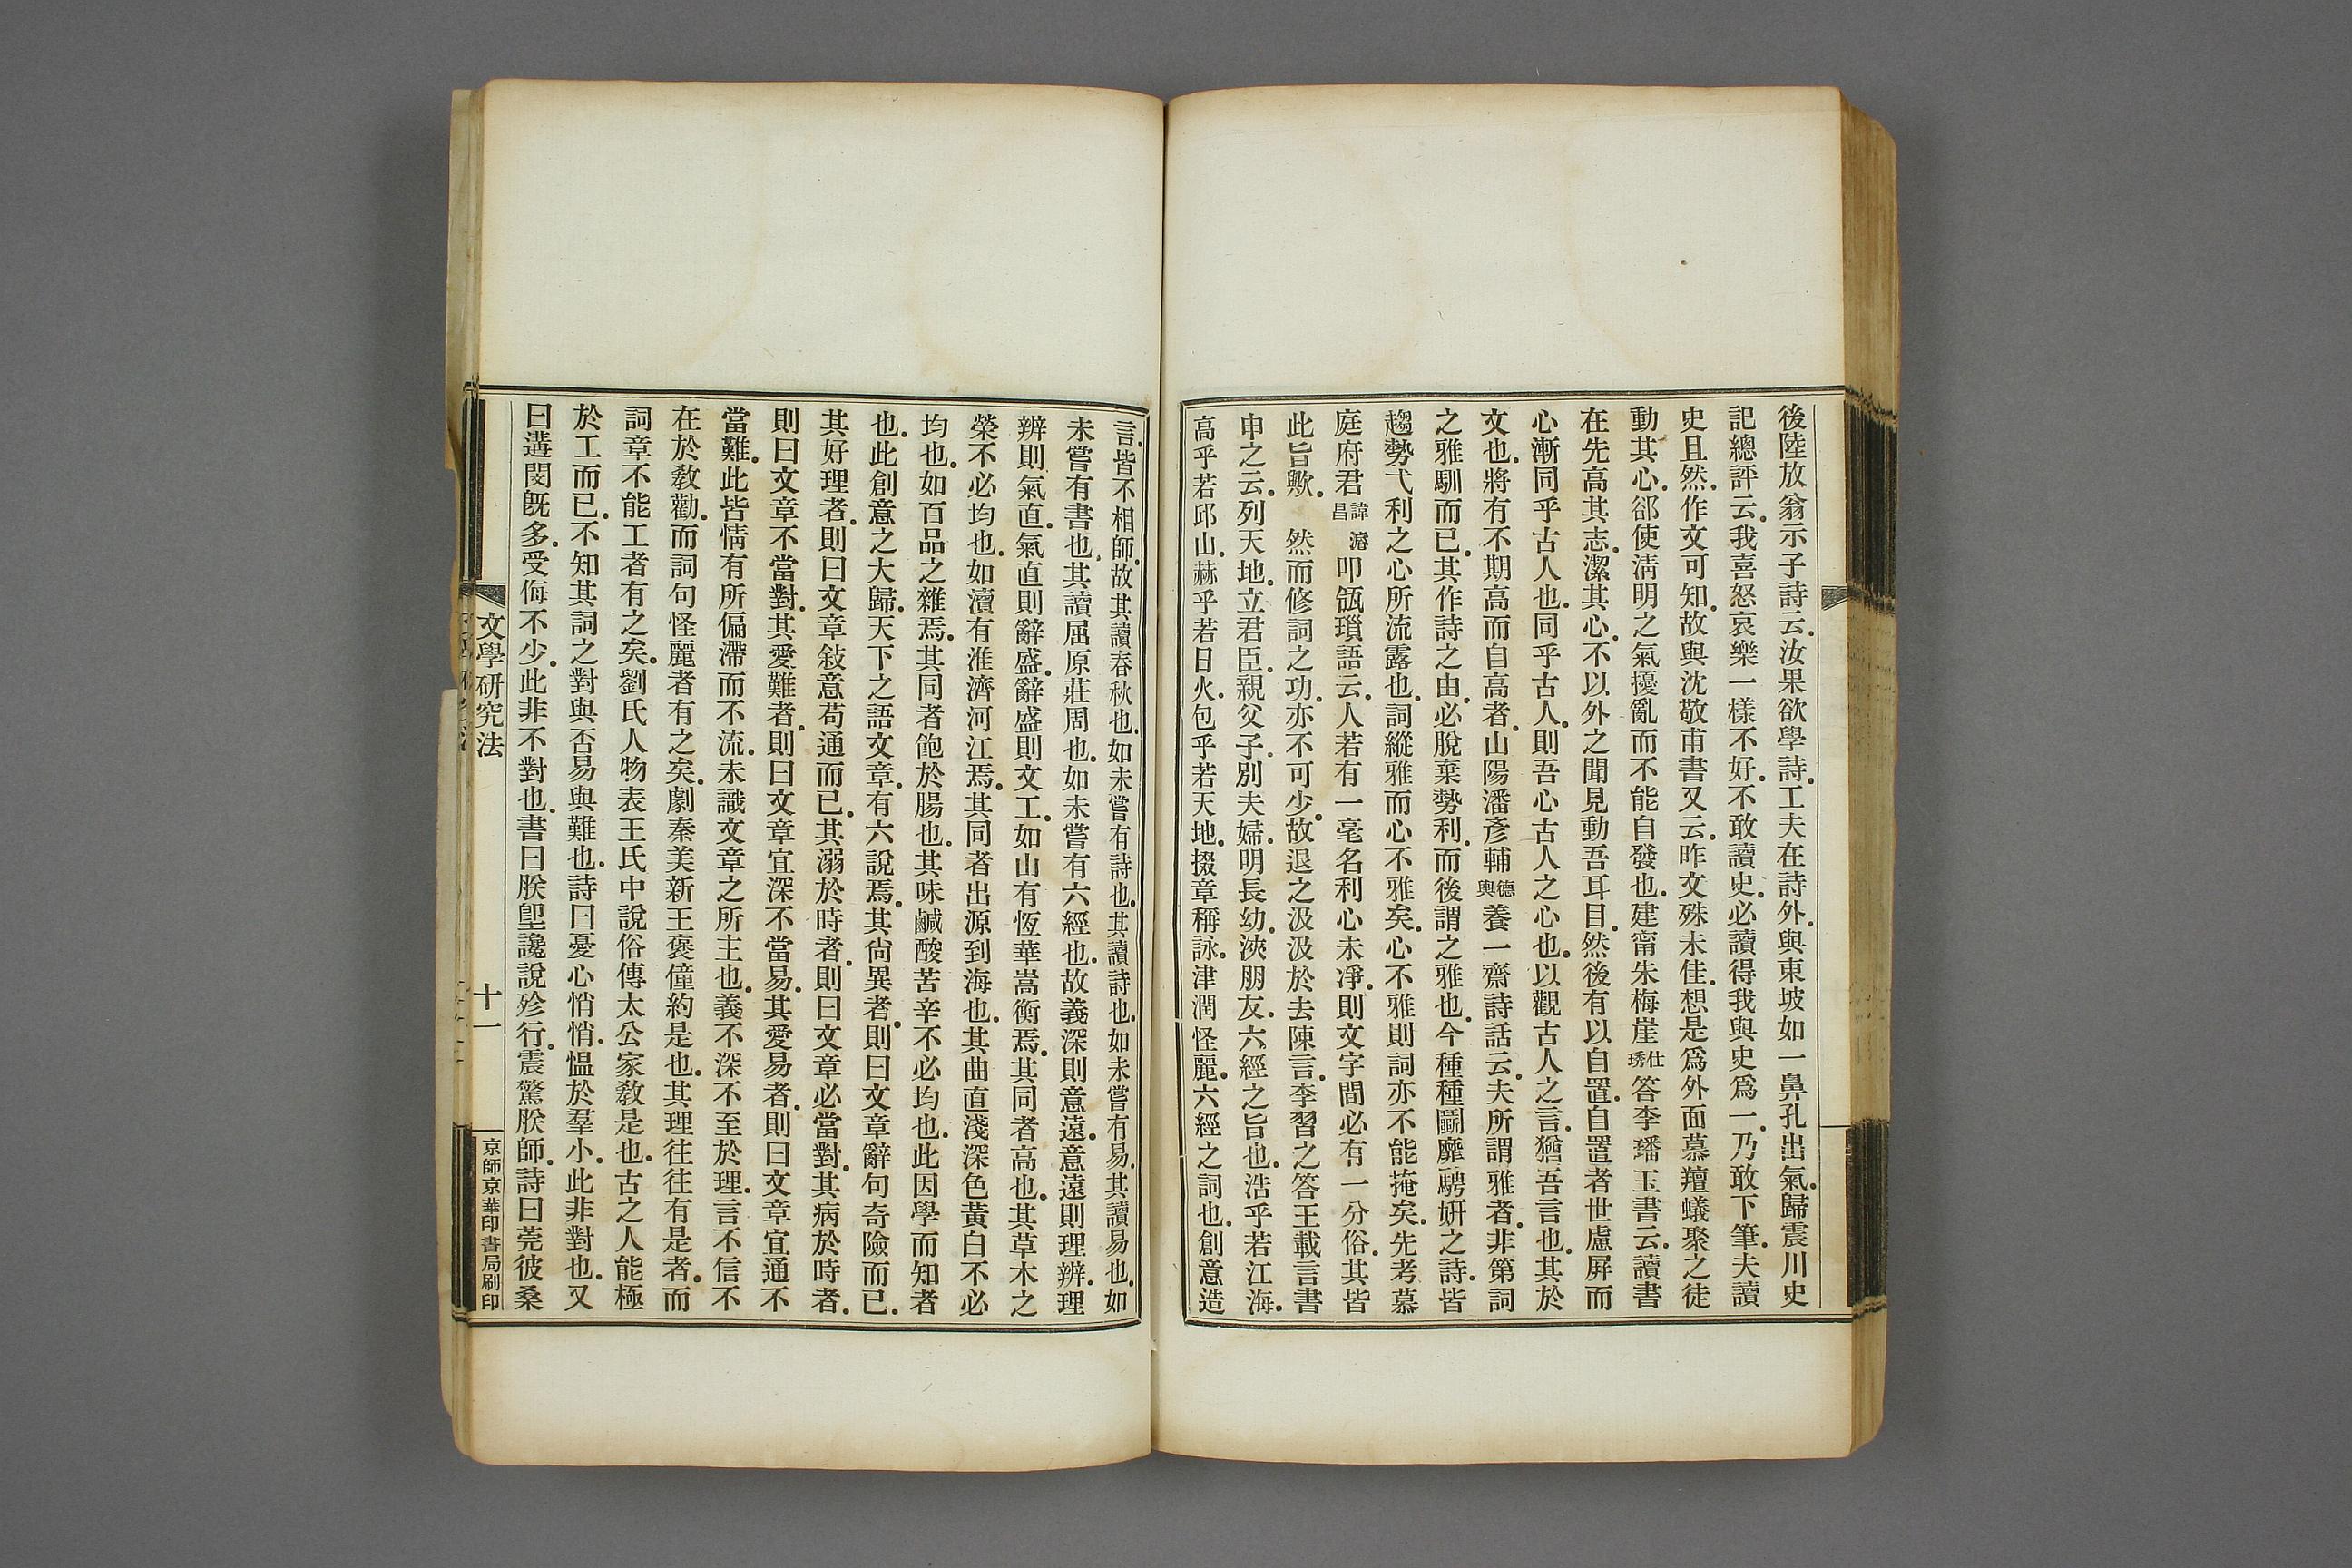 後陸放翁示子詩云。汝果欲學詩。工夫在詩外。與東坡如一鼻孔出氣。歸震川史
記總評云。我喜怒哀樂一樣不好。不敢讀史。必讀得我與史爲一。乃敢下筆。夫讀
史且然。作文可知。故與沈敬甫書又云。昨文殊未佳。想是爲外面慕羶蟻聚之徒
動其心。郤使淸明之氣擾亂而不能自發也。建甯朱梅崖仕琇答李璠玉書云。讀書
在先高其志。潔其心。不以外之聞見動吾耳目。然後有以自置。自置者世慮屏而
心漸同乎古人也。同乎古人。則吾心古人之心也。以觀古人之言。猶吾言也。其於
文也。將有不期高而自高者。山陽潘彥輔德輿養一齋詩話云。夫所謂雅者。非第詞
之雅馴而已。其作詩之由。必脫棄勢利。而後謂之雅也。今種種鬭靡騁妍之詩。皆
趨勢弋利之心所流露也。詞縱雅而心不雅矣。心不雅則詞亦不能掩矣。先考慕
庭府君諱濬昌叩瓴瑣語云。人若有一毫名利心未凈。則文字間必有一分俗。其皆
此旨歟。 然而修詞之功。亦不可少。故退之汲汲於去陳言。李習之答王載言書
申之云。列天地。立君臣。親父子。別夫婦。明長幼。浹朋友。六經之旨也。浩乎若江海。
高乎若邱山。赫乎若日火。包乎若天地。掇章稱詠。津潤怪麗。六經之詞也。創意造
言。皆不相師。故其讀春秋也。如未嘗有詩也。其讀詩也。如未嘗有易。其讀易也。如
未嘗有書也。其讀屈原莊周也。如未嘗有六經也。故義深則意遠。意遠則理辨。理
辨則氣直。氣直則辭盛。辭盛則文工。如山有恆華嵩衡焉。其同者高也。其草木之
榮不必均也。如瀆有淮濟河江焉。其同者出源到海也。其曲直淺深色黃白不必
均也。如百品之雜焉。其同者飽於腸也。其味鹹酸苦辛不必均也。此因學而知者
也。此創意之大歸。天下之語文章。有六說焉。其尙異者。則曰文章辭句奇險而已。
其好理者。則曰文章敍意苟通而已。其溺於時者。則曰文章必當對。其病於時者。
則曰文章不當對。其愛難者。則曰文章宜深不當易。其愛易者。則曰文章宜通不
當難。此皆情有所偏滯而不流。未識文章之所主也。義不深不至於理。言不信不
在於教勸。而詞句怪麗者有之矣。劇秦美新王褒僮約是也。其理往往有是者。而
詞章不能工者有之矣。劉氏人物表王氏中說俗傳太公家敎是也。古之人能極
於工而已。不知其詞之對與否易與難也。詩曰憂心悄悄。慍於羣小。此非對也。又
曰遘閔旣多。受侮不少。此非不對也。書曰朕堲讒說殄行。震驚朕師。詩曰莞彼桑
文學研究法
十一
京師京華印書局刷印